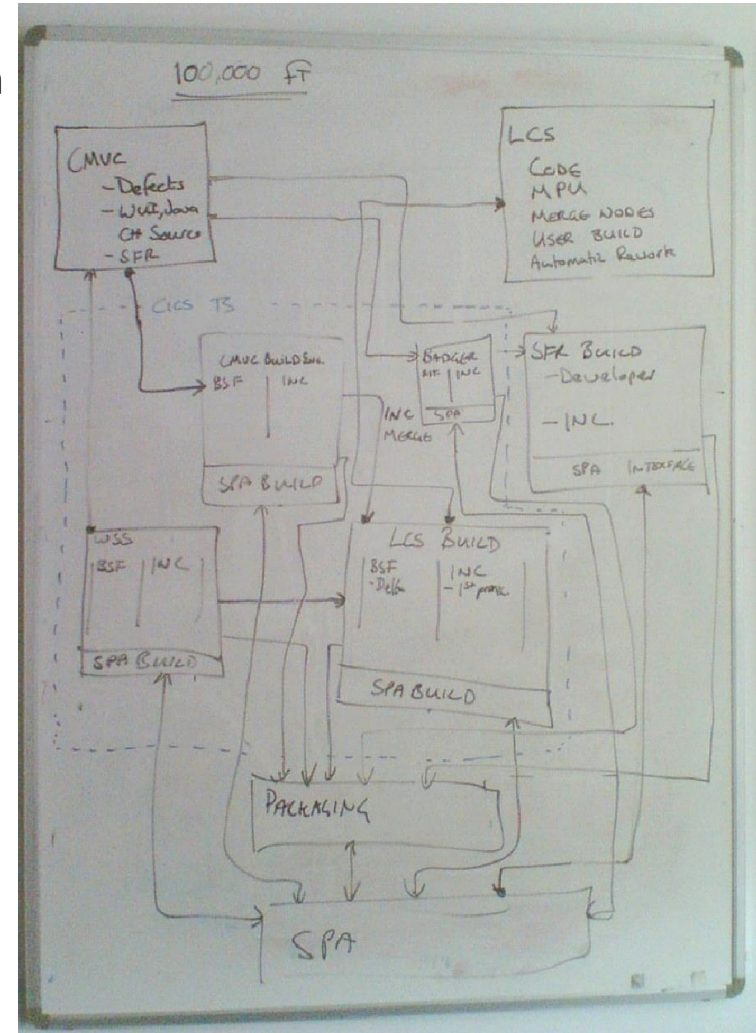 100,000 FT
CMVC
- Defects
- WUI, Java
C++ Source
- SFR
LCS
CODE
MPU
MERGE NODES
USER BUILD
Automatic Rework
CICS TS
CMVC BUILD
BSF INC
SPA BUILD
BADGER
INC
SPA
SFR BUILD
- Developer
- INC.
SPA INTERFACE
INC
MERGE
WSS
BSF INC
SPA BUILD
LCS BUILD
BSF INC
- Delta - 1st
SPA BUILD
PACKAGING
SPA